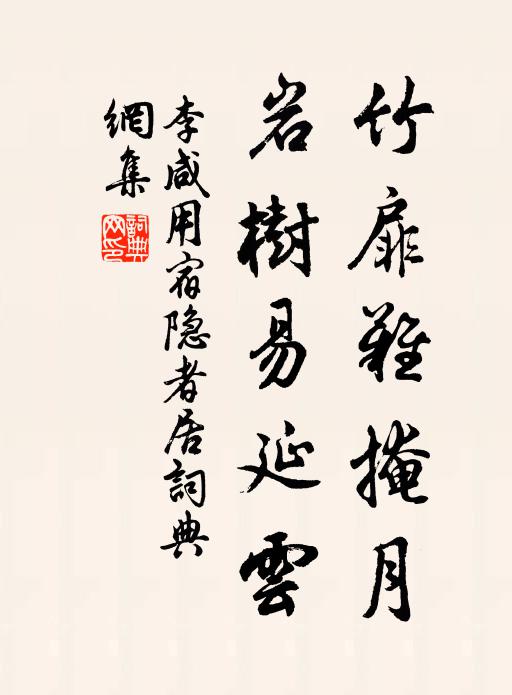 竹扉難掩月
岩樹易延雲
李咸用宿隐者居詞典
網集
詞典
网印